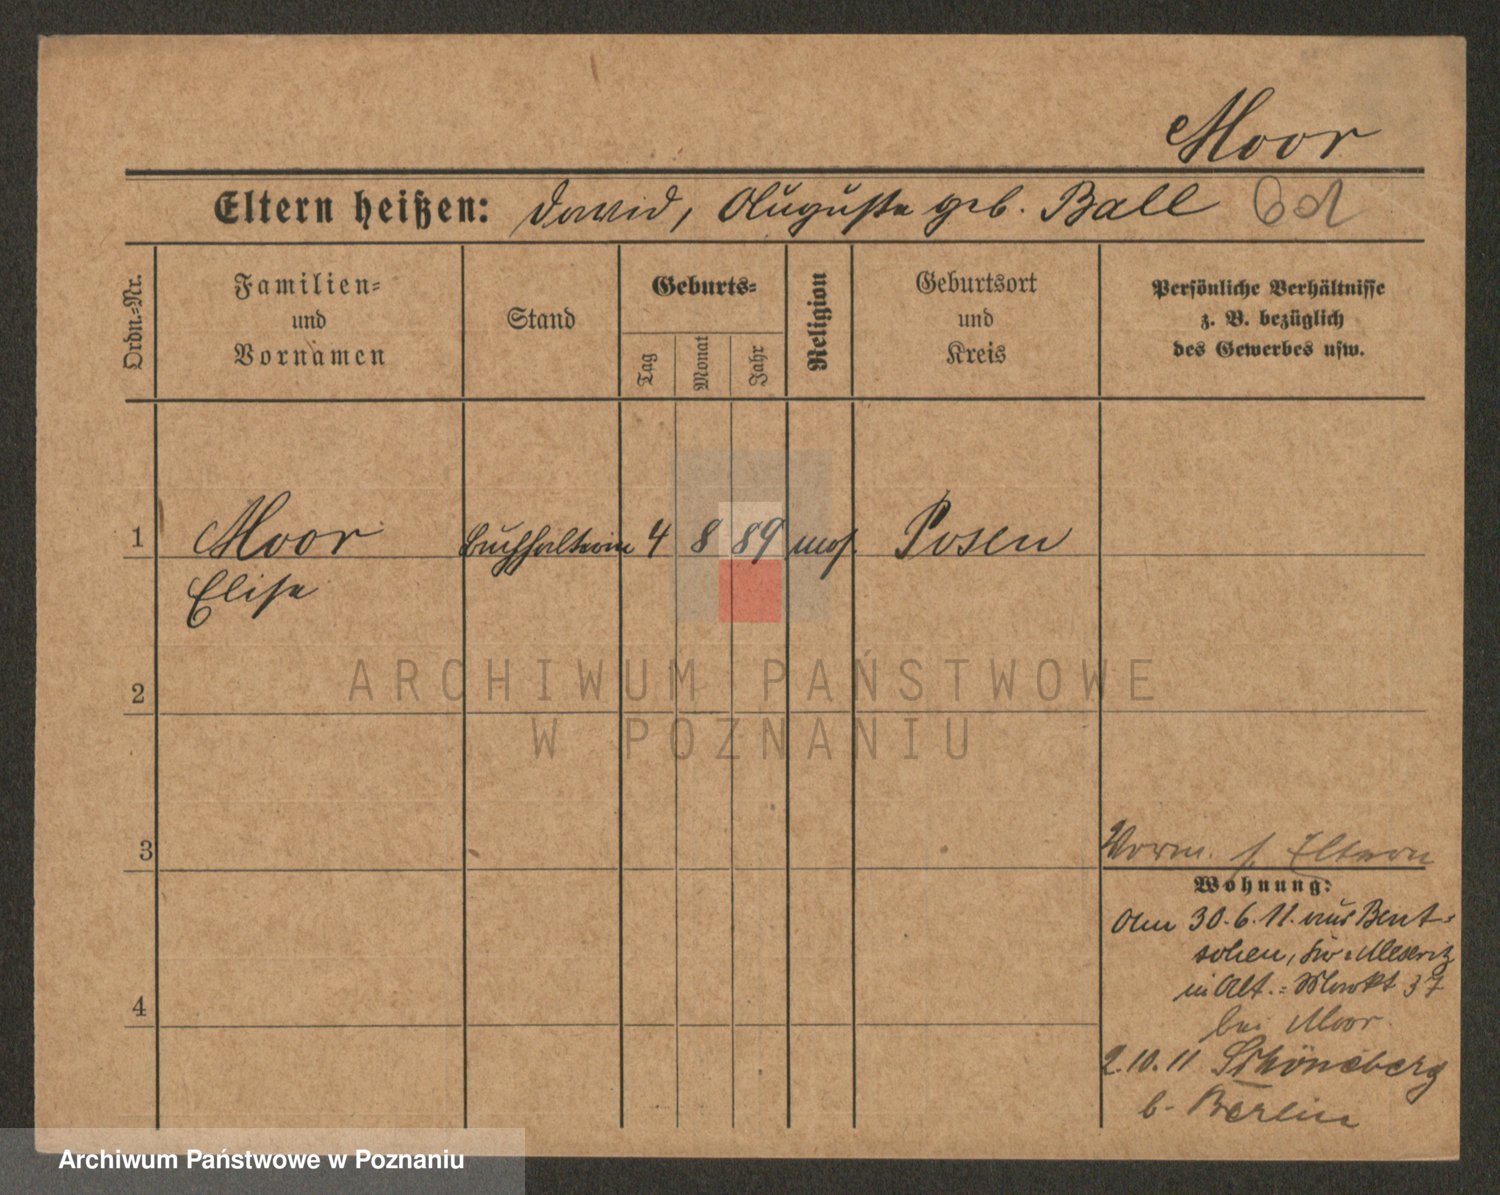 Moor
Eltern heißen: David, Auguste geb. Ball
Ordn.-Nr.
Familien-
und
Vornamen
Stand
Geburts-
Tag
Monat
Jahr
Religion
Geburtsort
und
Kreis
Persönliche Verhältnisse
z. B. bezüglich
des Gewerbes usw.
1 Moor Buchhalterin 4 8 89 mos. Posen
Elise
2
ARCHIWUM PAŃSTWOWE
W POZNANIU
3
Vorm. s. Eltern
Wohnung:
Am 30.6.11. aus Bent-
schen, Kr. Meseritz
in Alt.-Markt 37
bei Moor.
4
2.10.11 Schöneberg
b. Berlin
Archiwum Państwowe w Poznaniu